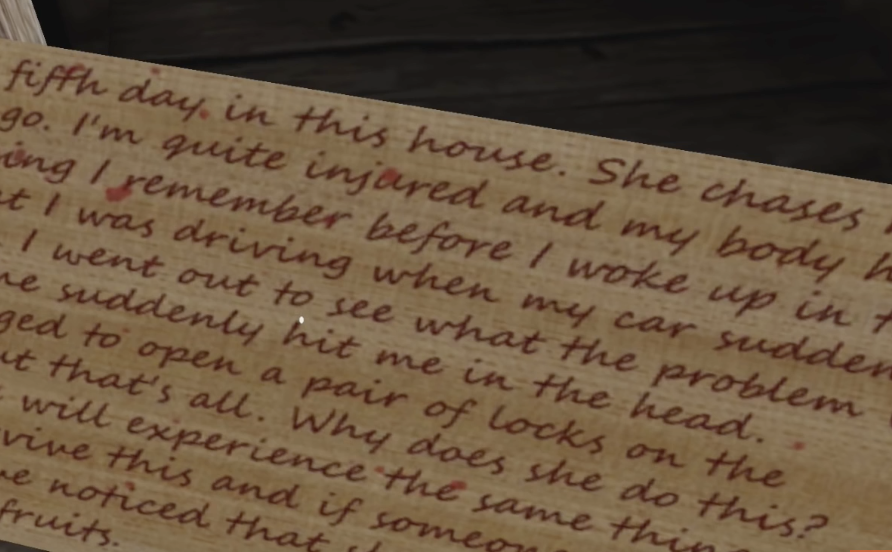 fifth day in this house. She chases
go. I'm quite injured and my body h
ing I remember before I woke up in t
t I was driving when my car sudden
I went out to see what the problem
e suddenly hit me in the head.
ged to open a pair of locks on the
ut that's all. Why does she do this?
will experience the same thin
vive this and if someon
e noticed that sh
fruits.